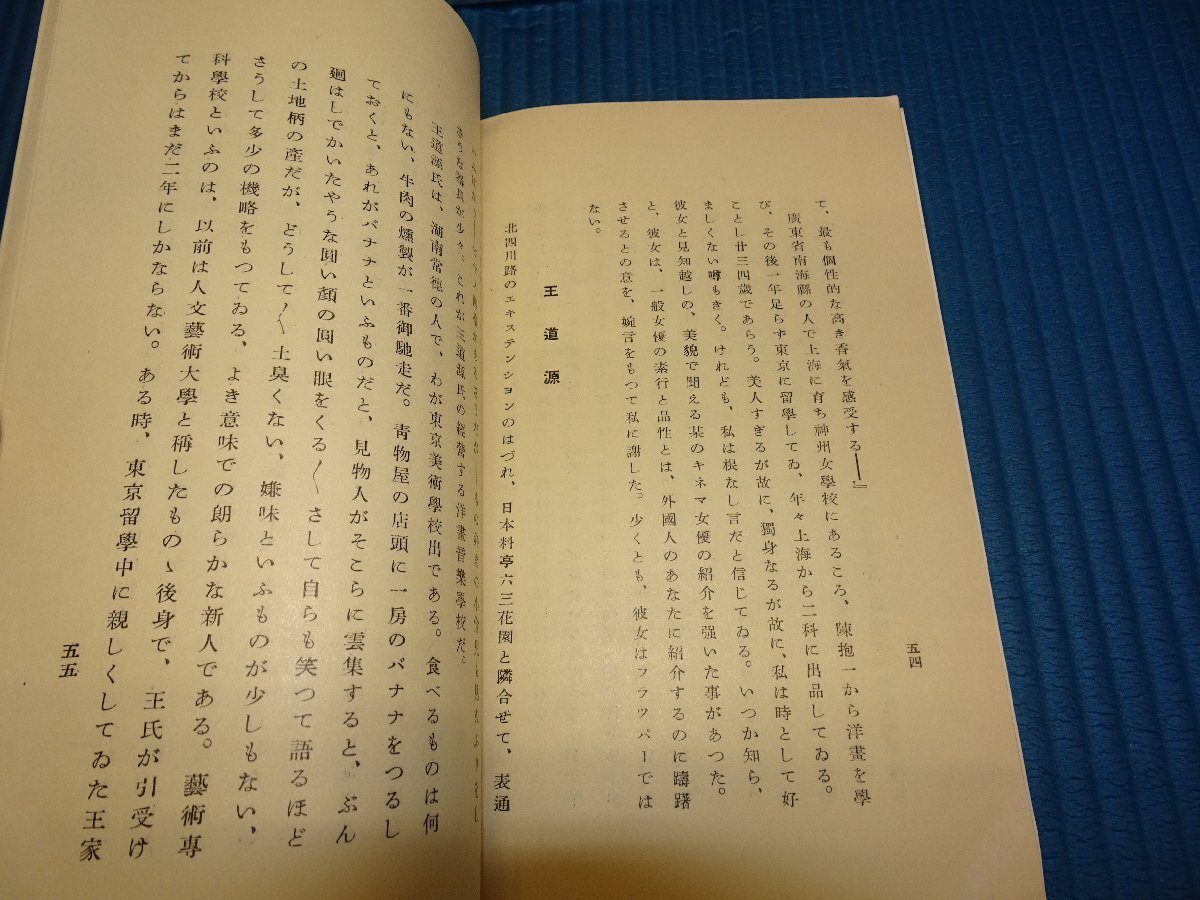 て、最も個性的な高き香氣を感受する――』
廣東省南海縣の人で上海に育ち神州女學校にあるころ、陳抱一から洋畫を學
び、その後一年足らず東京に留學してゐ、年々上海から二科に出品してゐる。
ことし廿三四歳であらう。美人すぎるが故に、獨身なるが故に、私は時として好
ましくない噂もきく。けれども、私は根なし言だと信じてゐる。いつか知ら、
彼女と見知越しの、美貌で聞える某のキネマ女優の紹介を强いた事があつた。
と、彼女は、一般女優の素行と品性とは、外國人のあなたに紹介するのに躊躇
させるとの意を、婉言をもつて私に謝した。少くとも、彼女はフラッパーでは
ない。
王道源
北四川路のエキステンションのはづれ、日本料亭六三花園と隣合せて、表通
五四
さうな
これが王道源氏の經營する洋畫音樂學校だ。
王道源氏は、湖南常德の人で、わが東京美術學校出である。食べるものは何
にもない、牛肉の燻製が一番御馳走だ。靑物屋の店頭に一房のバナナをつるし
ておくと、あれがバナナといふものだと、見物人がそこらに雲集すると、ぶん
廻はしでかいたやうな圓い顏の圓い眼をくる〱さして自らも笑つて語るほど
の土地柄の產だが、どうして〱土臭くない、嫌味といふものが少しもない、
さうして多少の機略をもつてゐる、よき意味での朗らかな新人である。藝術專
科學校といふのは、以前は人文藝術大學と稱したものゝ後身で、王氏が引受け
てからはまだ二年にしかならない。ある時、東京留學中に親しくしてゐた王家
五五